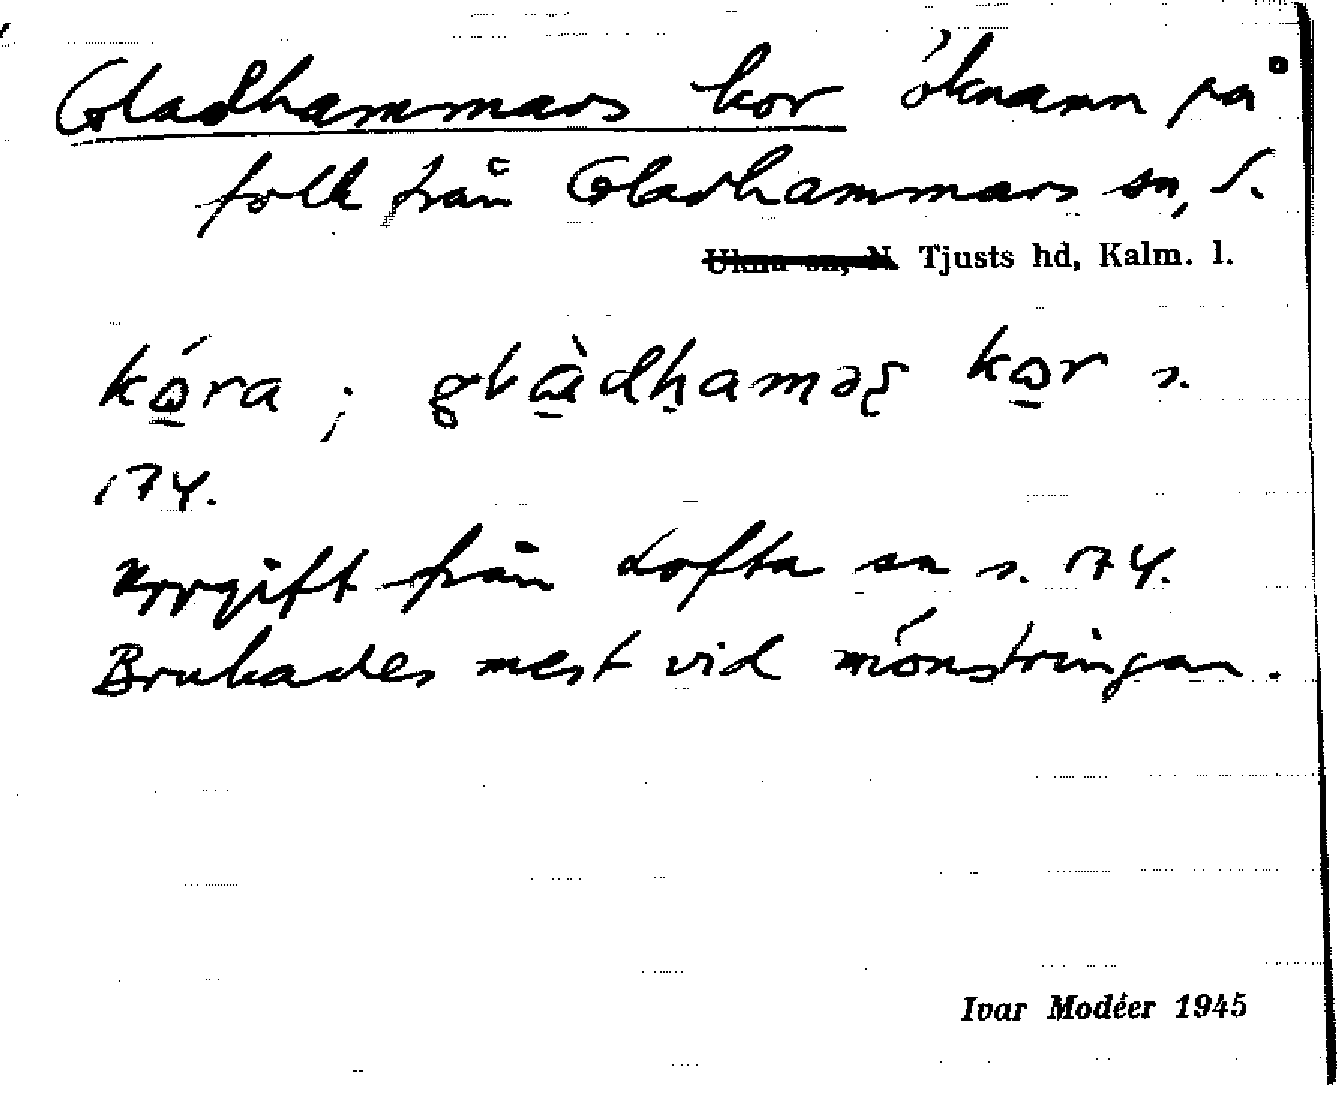 Gladhammars kor öknamn på
folk från Gladhammars sn, S.
Ukna sn, N. Tjusts hd, Kalm. l.
kó̲ra ; ko̲r s.
174.
Uppgift från Lofta sn s. 174.
Brukades mest vid mönstringar.
Ivar Modéer 1945